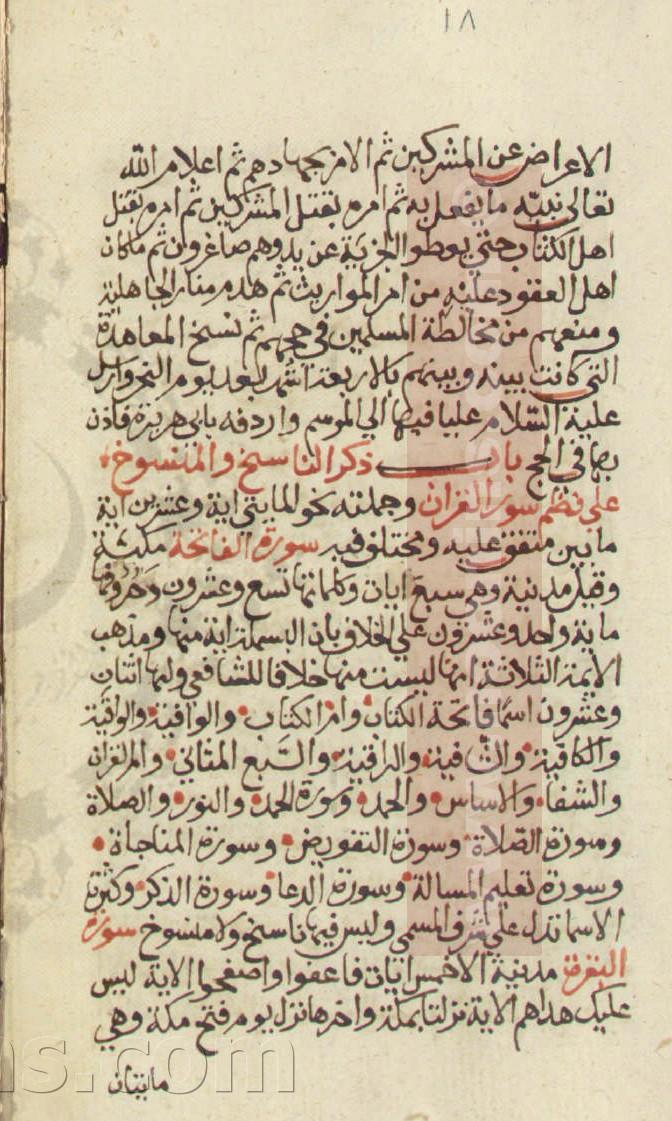 ١٨
الاعراض عن المشركين ثم الامر بجهادهم ثم اعلام الله
تعالى نبيّه ما يفعل به ثم امره بقتل المشركين ثم امره بقتل
اهل الكتاب حتى يعطوا الجزية عن يد وهم صاغرون ثم ماكان
اهل العقود عليه من امر المواريث ثم هدم منار الجاهلية
ومنعهم من مخالطة المسلمين في حجهم ثم نسخ المعاهدة
التي كانت بينه وبينهم بالاربعة اشهر بعد يوم النحر وارسل
عليه السّلام عليا فيها الي الموسم واردفه بابى هريرة فاذن
بها في الحج باب ذكر الناسخ والمنسوخ
على نظم سور القران وجملته نحو المايتى اية وعشرين اية
ما بين متفق عليه ومختلف فيه سورة الفاتحة مكيّة
وقيل مدنية وهي سبع ايات وكلماتها تسع وعشرون وحروفها
ماية واحد وعشرون علي الخلاف بان البسملة اية منها ومذهب
الايمة الثلاثة انها ليست منها خلافا للشافعي ولها اثنان
وعشرون اسما فاتحة الكتاب وام الكتاب والوافية والواقية
والكافية والشافية والراقية والسّبع المثاني وام القران
والشفاء والاساس والحمد وسورة الحمد والنور والصلاة
وسورة الصّلاة وسورة التفويض وسورة المناجاة
وسورة تعليم المسالة وسورة الدعا وسورة الذكر وكثرة
الاسما تدل علي شرف المسمى وليس فيها ناسخ ولا منسوخ سورة
البقرة مدنية الا خمس ايات فاعفوا واصفحوا الاية ليس
عليك هداهم الاية نزلتا بمكة واخرها نزل يوم فتح مكة وهي
مايتان
ns.com